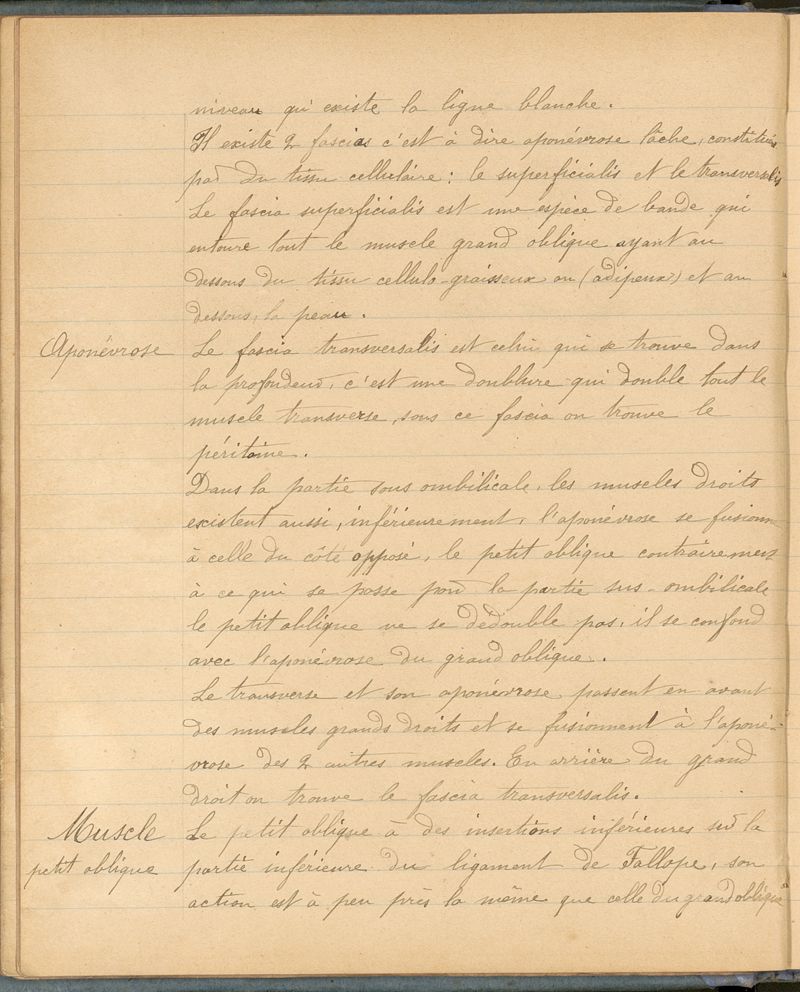 niveau qu'existe la ligne blanche.
Il existe 2 fascias c'est à dire aponévrose lâche, constituées
par du tissu cellulaire : le superficialis et le transversalis
Le fascia superficialis est une espèce de bande qui
entoure tout le muscle grand oblique ayant au
dessous du tissu cellulo-graisseux ou (adipeux) et au
dessous, la peau.
Aponévrose
Le fascia transversalis est celui qui se trouve dans
la profondeur, c'est une doublure qui double tout le
muscle transverse, sous ce fascia on trouve le
péritoine.
Dans la partie sous ombilicale, les muscles droits
existent aussi, inférieurement, l'aponévrose se fusionne
à celle du côté opposé, le petit oblique contrairement
à ce qui se passe pour la partie sus-ombilicale
le petit oblique ne se dédouble pas, il se confond
avec l'aponévrose du grand oblique.
Le transverse et son aponévrose passent en avant
des muscles grands droits et se fusionnent à l'aponé-
vrose des 2 autres muscles. En arrière du grand
droit on trouve le fascia transversalis.
Muscle
petit oblique
Le petit oblique à des insertions inférieures sur la
partie inférieure du ligament de Fallope, son
action est à peu près la même que celle du grand oblique